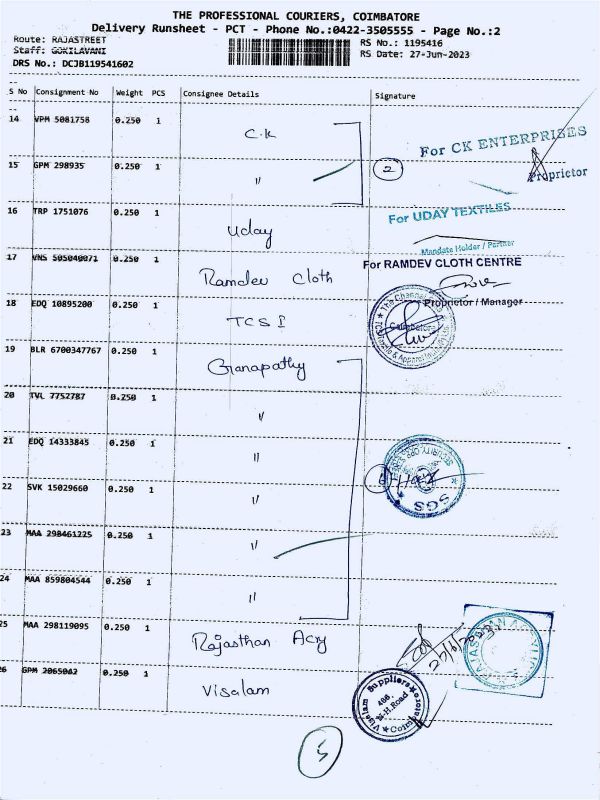 THE PROFESSIONAL COURIERS, COIMBATORE
Delivery Runsheet - PCT - Phone No.:0422-3505555 - Page No.:2
Route: RAJASTREET
RS No.: 1195416
Staff: GOKILAVANI
RS Date: 27-Jun-2023
DRS No.: DCJB119541602
S No Consignment No Weight PCS Consignee Details Signature
14 VPM 5081758 0.250 1 C.K
For CK ENTERPRISES
Proprietor
15 GPM 298935 0.250 1 " 2
16 TRP 1751076 0.250 1 Uday
For UDAY TEXTILES
Mandate Holder / Partner
17 VNS 505040071 0.250 1 Ramdev Cloth
For RAMDEV CLOTH CENTRE
Proprietor / Manager
18 EDQ 10895200 0.250 1 TCS I
Coimbatore
19 BLR 6700347767 0.250 1 Ganapathy
20 TVL 7752787 0.250 1 "
21 EDQ 14333845 0.250 1 "
SGS
22 SVK 15029660 0.250 1 "
23 MAA 298461225 0.250 1 "
24 MAA 859804544 0.250 1 "
25 MAA 298119095 0.250 1 Rajasthan Acry
27/6/2023
26 GPM 2065042 0.250 1 Visalam
Visalam Suppliers
466,
N.H.Road
Coimbatore
5